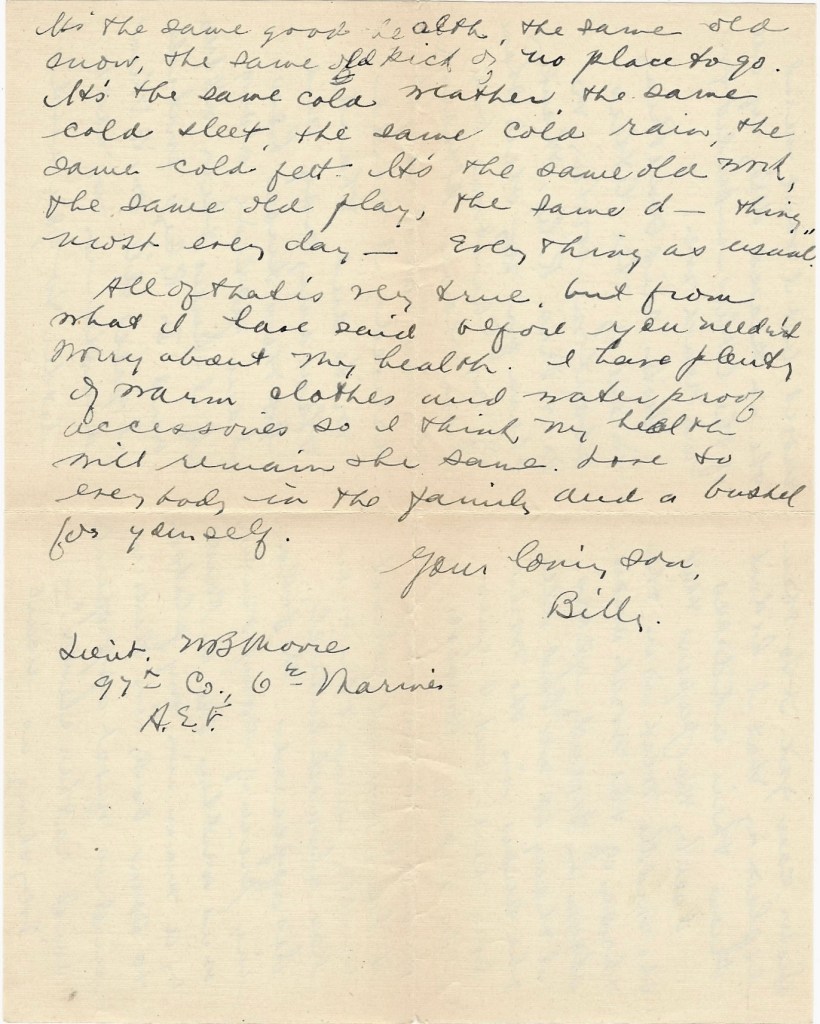 It's the same good health, the same old
snow, the same old kick of no place to go.
It's the same cold weather, the same
cold sleet, the same cold rain, the
same cold feet. It's the same old work,
the same old play, the same d— thing
most every day — Everything as usual."
All of that is very true, but from
what I have said before you needn't
worry about my health. I have plenty
of warm clothes and waterproof
accessories so I think my health
will remain the same. Love to
everybody in the family and a bushel
for yourself.
Your loving son,
Billy.
Lieut. WB Moore
97th Co., 6th Marines
A.E.F.